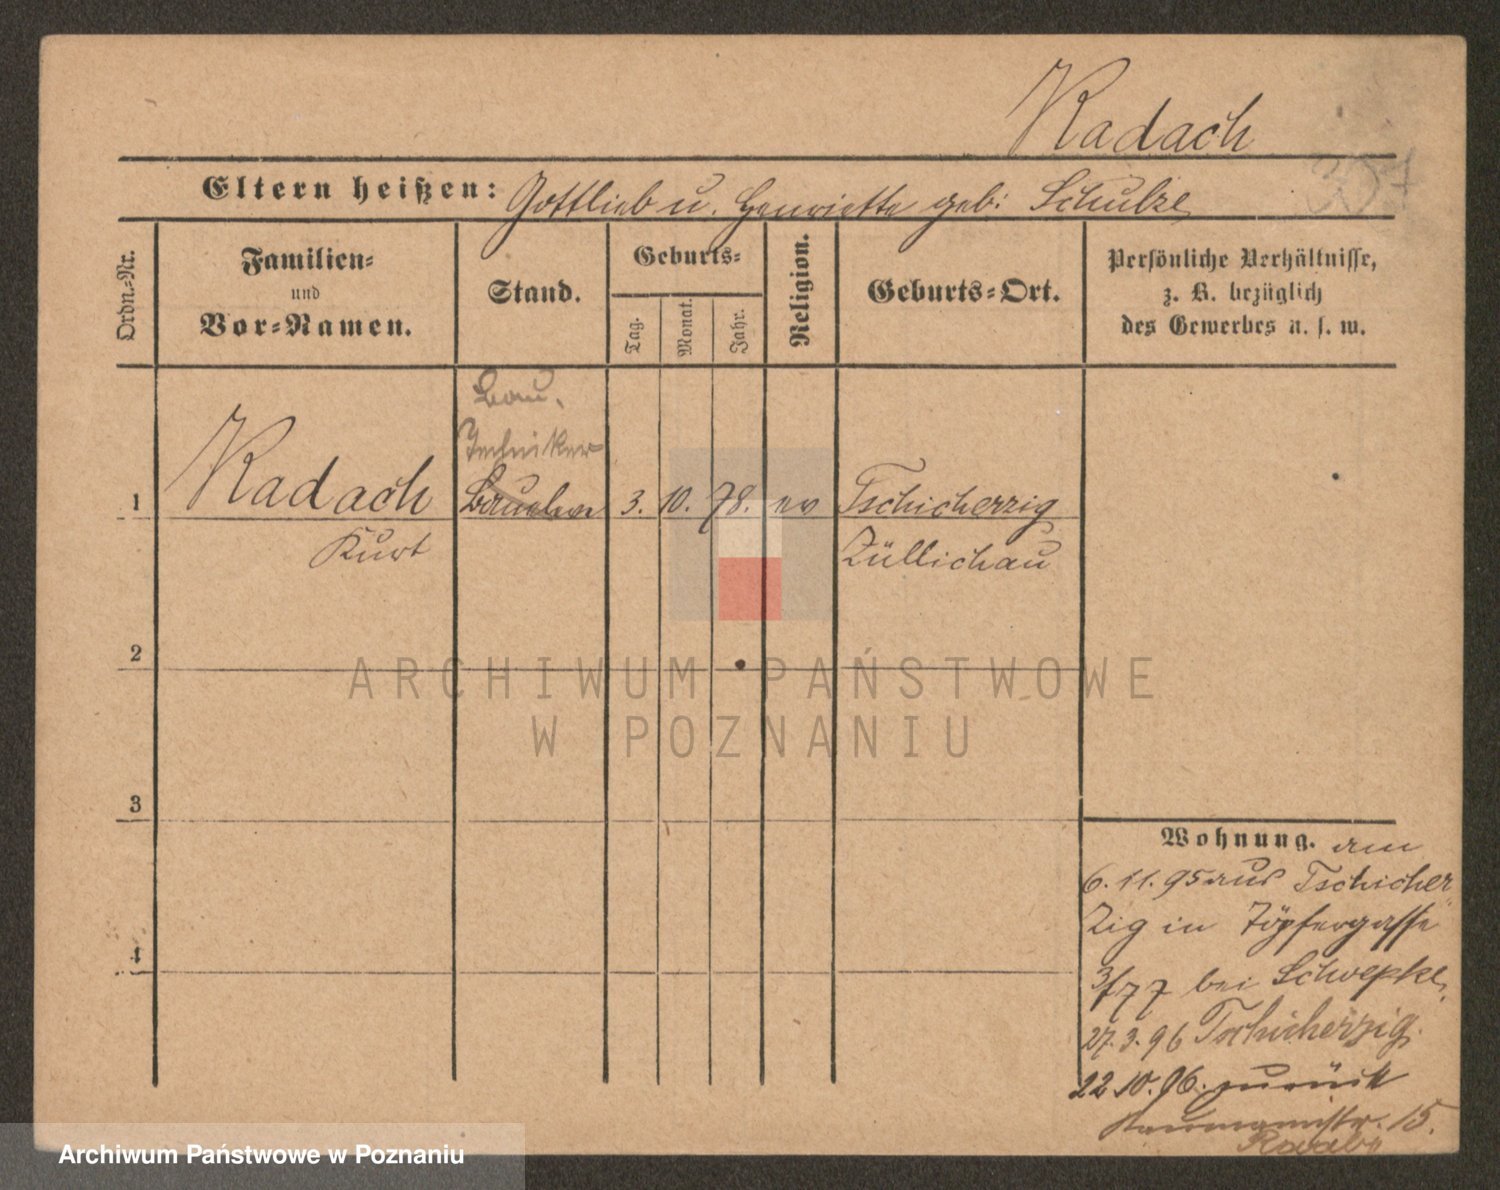 Radach
307
Eltern heißen: Gottlieb u. Henriette geb: Schulze
Ordn.-Nr.
Familien-
und
Vor-Namen.
Stand.
Geburts-
Tag.
Monat.
Jahr.
Religion.
Geburts-Ort.
Persönliche Verhältnisse,
z. B. bezüglich
des Gewerbes u. s. w.
Bau.
Techniker
1 Radach 3. 10. 78. ev Tschicherzig
Kurt Züllichau
2
3
4
Wohnung. am
6. 11. 95 aus Tschicher
zig in Töpfergasse
3/77 bei Schepke,
27. 3. 96 Tschicherzig.
22 10. 96. zurück
15.
ARCHIWUM PAŃSTWOWE
W POZNANIU
Archiwum Państwowe w Poznaniu